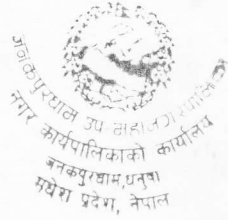 जनकपुरधाम उप-महानगरपालिका
नगर कार्यपालिकाको कार्यालय
जनकपुरधाम,धनुषा
मधेश प्रदेश, नेपाल